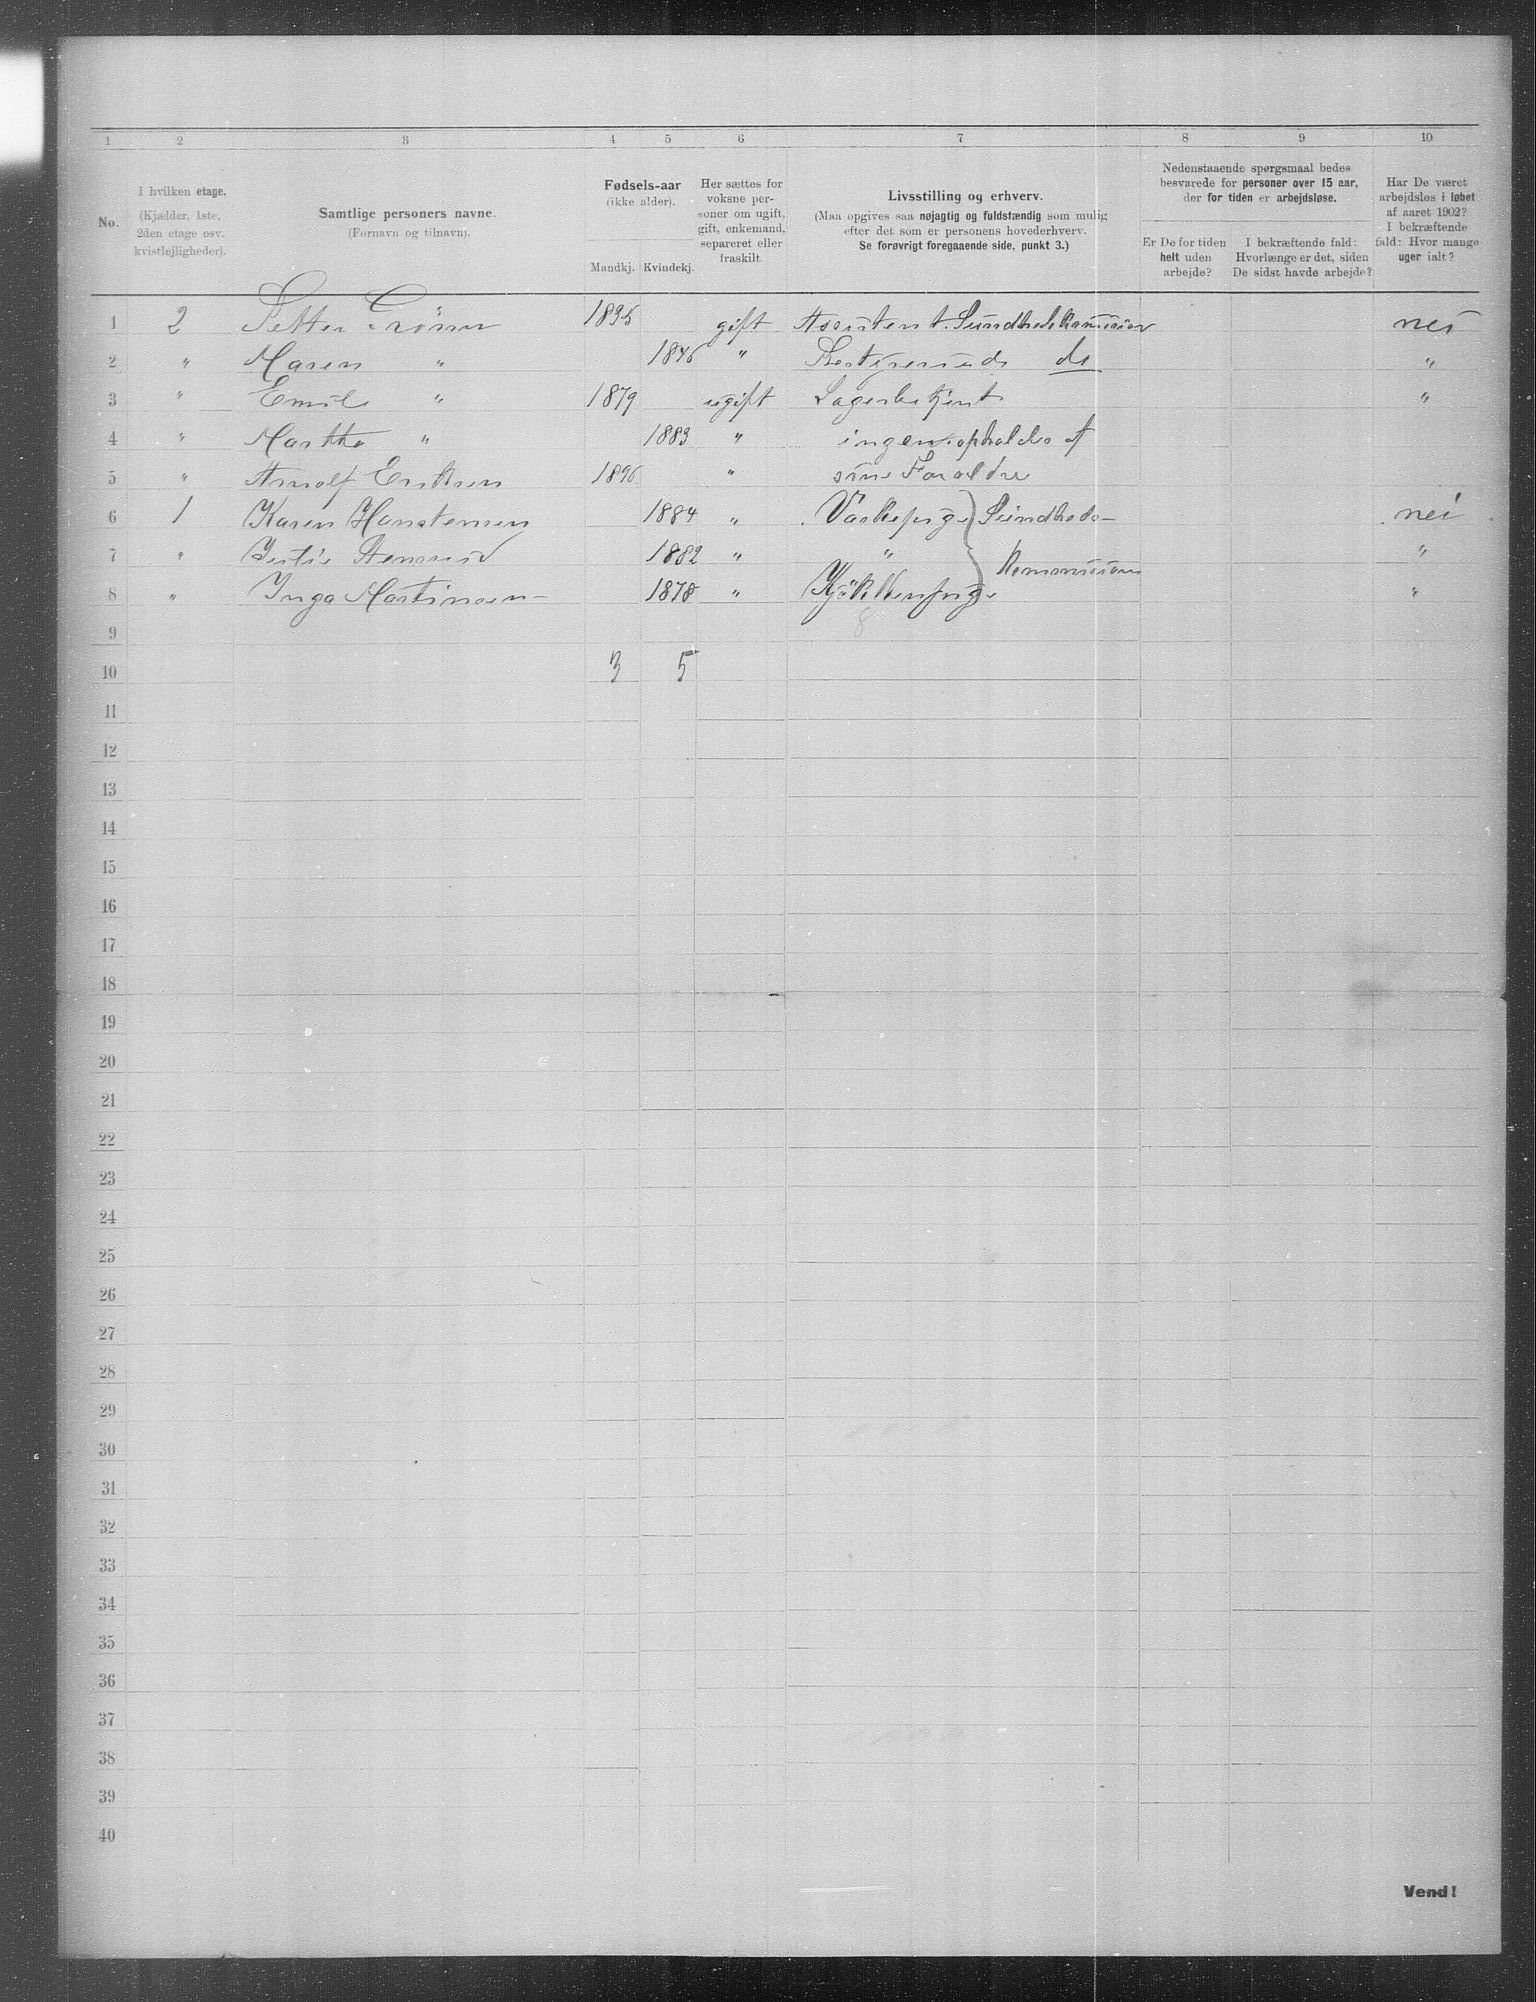 1 2 3 4 5 6 7 8 9 10
No.
I hvilken etage.
(Kjælder, 1ste,
2den etage osv.
kvistlejligheder).
Samtlige personers navne.
(Fornavn og tilnavn).
Fødsels-aar
(ikke alder).
Mandkj. Kvindekj.
Her sættes for
voksne per-
soner om ugift,
gift, enkemand,
separeret eller
fraskilt.
Livsstilling og erhverv.
(Maa opgives saa nøjagtig og fuldstændig som mulig
efter det som er personens hovederhverv.
Se forøvrigt foregaaende side, punkt 3.)
Nedenstaaende spørgsmaal bedes
besvarede for personer over 15 aar,
der for tiden er arbejdsløse.
Er De for tiden
helt uden
arbejde?
I bekræftende fald:
Hvorlænge er det, siden
De sidst havde arbejde?
Har De været
arbejdsløs i løbet
af aaret 1902?
I bekræftende
fald: Hvor mange
uger ialt?
1 2 Petter 1835 gift Assistent. Sundhedskomision nei
2 " Maren " 1846 " do "
3 " Emil " 1879 ugift Lagerbetjent "
4 " Martha " 1883 " ingen opholdes af
5 " Arnolf Eriksen 1896 " sine Foraldre
6 1 Karen Hanstensen 1884 " Vaskepige Sundheds- nei
7 " 1882 " " Kommision "
8 " Inga Martinsen 1878 " Kjøkkenpige "
8
9
10 3 5
11
12
13
14
15
16
17
18
19
20
21
22
23
24
25
26
27
28
29
30
31
32
33
34
35
36
37
38
39
40
Vend!